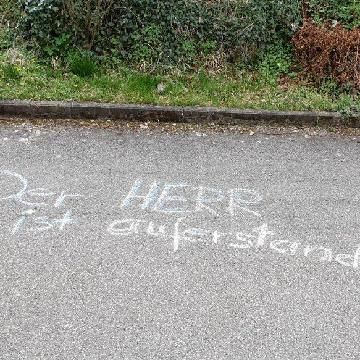 Der HERR
ist auferstand